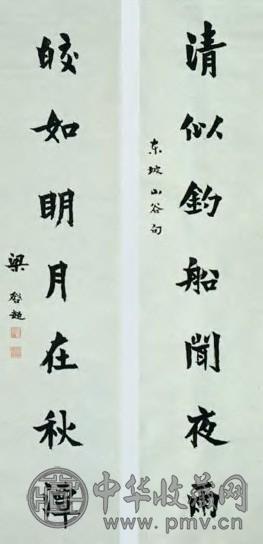 清似釣船聞夜雨
东坡山谷句
皎如明月在秋潭
梁啓超
中华收藏网
www.pmv.cn